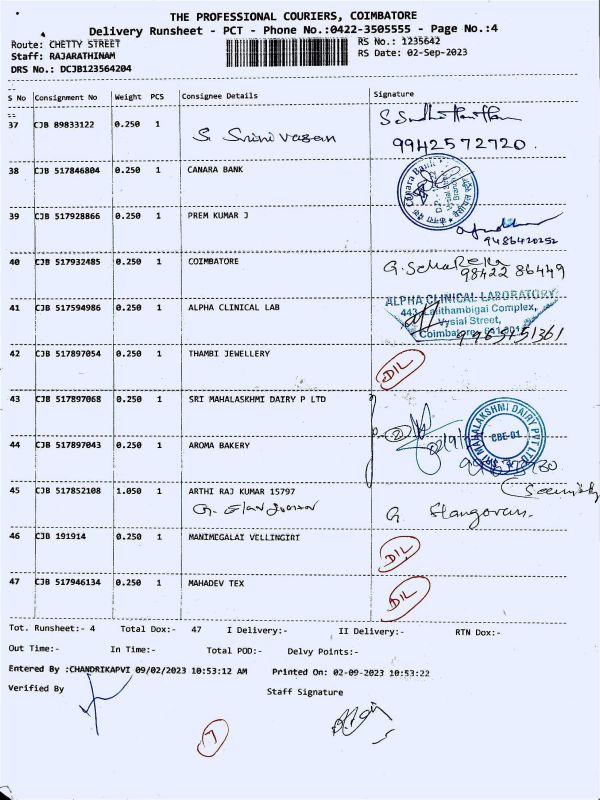 THE PROFESSIONAL COURIERS, COIMBATORE
Delivery Runsheet - PCT - Phone No.:0422-3505555 - Page No.:4
Route: CHETTY STREET RS No.: 1235642
Staff: RAJARATHINAM RS Date: 02-Sep-2023
DRS No.: DCJB123564204
S No Consignment No Weight PCS Consignee Details Signature
37 CJB 89833122 0.250 1 S. Srinivasan
9942572720.
38 CJB 517846804 0.250 1 CANARA BANK
Canara Bank
39 CJB 517928866 0.250 1 PREM KUMAR J
9486420252
40 CJB 517932485 0.250 1 COIMBATORE
98422 86449
41 CJB 517594986 0.250 1 ALPHA CLINICAL LAB
ALPHA CLINICAL LABORATORY
443, Lalithambigai Complex,
Vysial Street,
Coimbatore
42 CJB 517897054 0.250 1 THAMBI JEWELLERY DIL
43 CJB 517897068 0.250 1 SRI MAHALASKHMI DAIRY P LTD
SRI MAHALAKSHMI DAIRY PVT LTD
CBE-01
44 CJB 517897043 0.250 1 AROMA BAKERY
2
45 CJB 517852108 1.050 1 ARTHI RAJ KUMAR 15797
G. Elangovan.
46 CJB 191914 0.250 1 MANIMEGALAI VELLINGIRI DIL
47 CJB 517946134 0.250 1 MAHADEV TEX DIL
Tot. Runsheet:- 4 Total Dox:- 47 I Delivery:- II Delivery:- RTN Dox:-
Out Time:- In Time:- Total POD:- Delvy Points:-
Entered By :CHANDRIKAPVI 09/02/2023 10:53:12 AM Printed On: 02-09-2023 10:53:22
Verified By Staff Signature
7